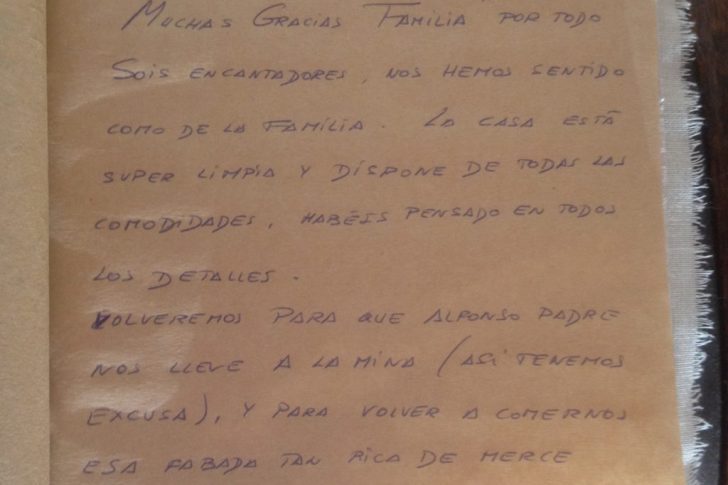 MUCHAS GRACIAS FAMILIA POR TODO
SOIS ENCANTADORES, NOS HEMOS SENTIDO
COMO DE LA FAMILIA. LA CASA ESTÁ
SUPER LIMPIA Y DISPONE DE TODAS LAS
COMODIDADES, HABÉIS PENSADO EN TODOS
LOS DETALLES.
VOLVEREMOS PARA QUE ALFONSO PADRE
NOS LLEVE A LA MINA (ASÍ TENEMOS
EXCUSA), Y PARA VOLVER A COMERNOS
ESA FABADA TAN RICA DE MERCE